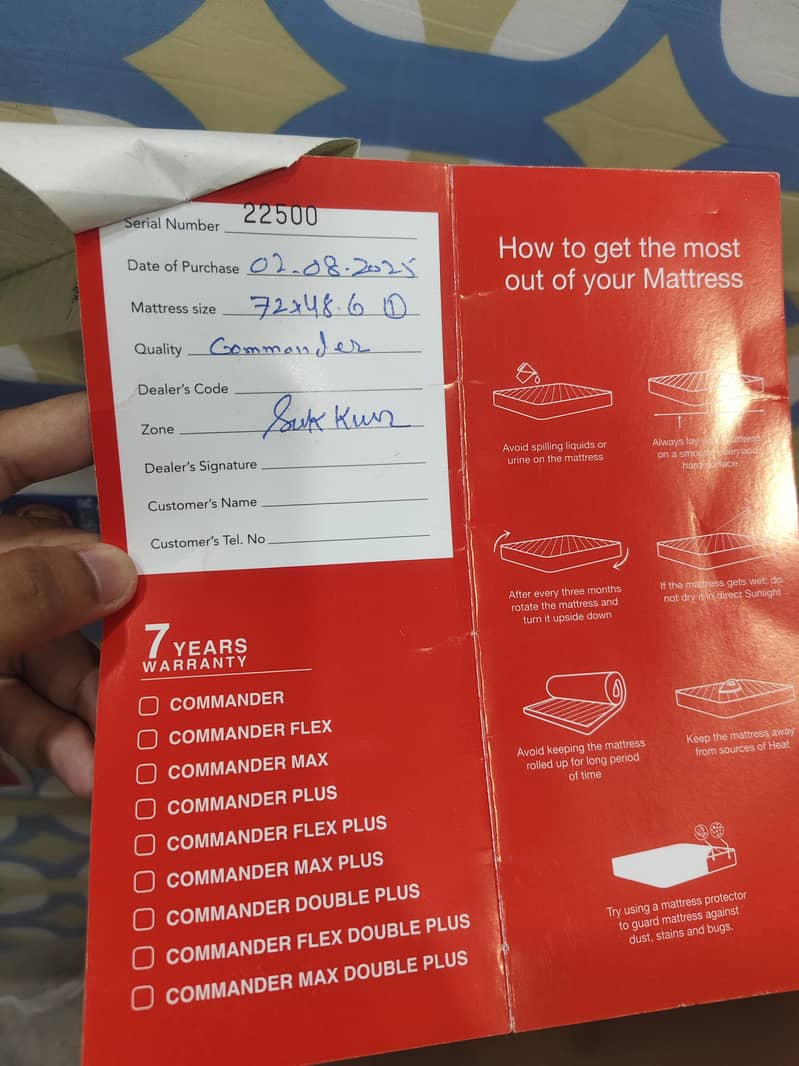 Serial Number 22500
Date of Purchase 02-08-2025
Mattress size 72x48.6 ①
Quality Commander
Dealer's Code
Zone Sukkur
Dealer's Signature
Customer's Name
Customer's Tel. No
7 YEARS
WARRANTY
COMMANDER
COMMANDER FLEX
COMMANDER MAX
COMMANDER PLUS
COMMANDER FLEX PLUS
COMMANDER MAX PLUS
COMMANDER DOUBLE PLUS
COMMANDER FLEX DOUBLE PLUS
COMMANDER MAX DOUBLE PLUS
How to get the most
out of your Mattress
Avoid spilling liquids or
urine on the mattress
Always lay your mattress
on a smooth even and
hard surface
After every three months
rotate the mattress and
turn it upside down
If the mattress gets wet, do
not dry it in direct Sunlight
Avoid keeping the mattress
rolled up for long period
of time
Keep the mattress away
from sources of Heat
Try using a mattress protector
to guard mattress against
dust, stains and bugs.